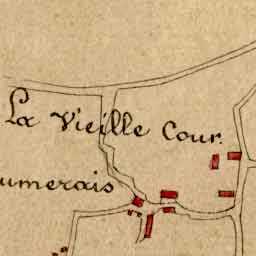 La Vieille Cour.
umerais